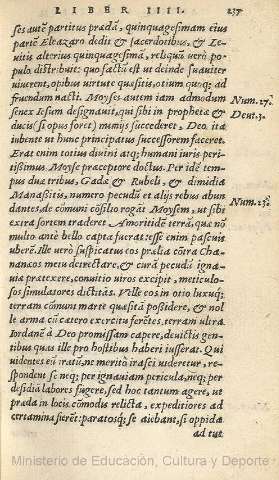 LIBER IIII. 237
ses aūt partitus prædā, quinquagesimam eius
partē Eleazaro dedit & sacerdotibus, & Le-
uitis alterius quinquagesimā, reliquū verò po
pulo distribuit: quo factū est ut deinde suauiter
viuerent, opibus virtute quæsitis, otium quoq; ad
fruendum nacti. Moyses autem iam admodum
Num. 27.
senex Iesum designauit, qui sibi in prophetæ &
Deut. 3.
ducis (si opus foret) munijs succederet, Deo, ita
iubente ut hunc principatus successorem faceret.
Erat enim totius diuini atq; humani iuris peri-
tissimus Moyse præceptore doctus. Per idē tem-
pus duæ tribus, Gadæ & Rubeli, & dimidia
Manassitis, numero pecudū et alijs rebus abun
Num. 32.
dantes, de cōmuni cōsilio rogāt Moysem, ut sibi
extra sortem traderet Amoritidē terrā, quæ nō
multo ante bello capta fuerat: esse enim pascuis
uberē. Ille verò suspicatus eos prælia cōtra Cha-
nanæos metu detrectare, & curā pecudū igna-
uiæ prætexere, conuitio viros excipit, meticulo-
sos simulatores dictitās. Velle eos in otio luxuq;
terram cōmuni marte quæsitā possidere, & nol
le arma cū cætero exercitu ferētes, terram ultra
Iordanē à Deo promissam capere, deuictis gen-
tibus quas ille pro hostibus haberi iusserat. Qui
uidentes eū iratū, ne meritò irasci videretur, re-
spondent se neq; per ignauiam pericula, neq; per
desidiā labores fugere, sed hoc tantum agere, ut
præda in locis cōmodis relicta, expeditiores ad
certamina fierēt: paratosq; se aiebant, si oppida
ad tut
Ministerio de Educación, Cultura y Deporte